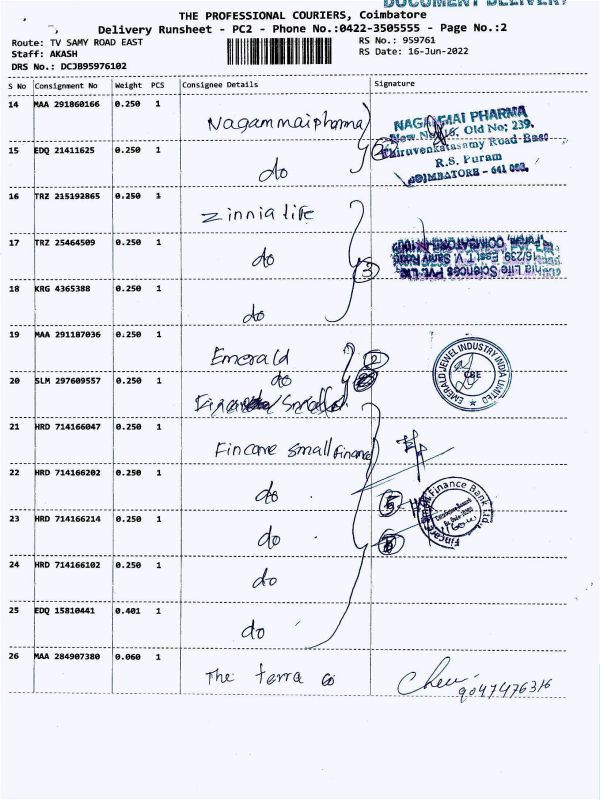 DOCUMENT DELIVERY
THE PROFESSIONAL COURIERS, Coimbatore
Delivery Runsheet - PC2 - Phone No.:0422-3505555 - Page No.:2
Route: TV SAMY ROAD EAST
RS No.: 959761
Staff: AKASH
RS Date: 16-Jun-2022
DRS No.: DCJB95976102
S No Consignment No Weight PCS Consignee Details Signature
14 MAA 291860166 0.250 1
Nagammai pharma
NAGAMMAI PHARMA
New No: Old No; 239,
Thiruvenkatasamy Road-East
R.S. Puram
COIMBATORE - 641 002.
15 EDQ 21411625 0.250 1
do
16 TRZ 215192865 0.250 1
Zinnia life
17 TRZ 25464509 0.250 1
do
3
Zinnia Life Sciences Pvt. Ltd.
East T. V. Samy Road
18 KRG 4365388 0.250 1
do
19 MAA 291187036 0.250 1
Emerald
2
EMERALD JEWEL INDUSTRY INDIA LIMITED
CBE
20 SLM 297609557 0.250 1
do
21 HRD 714166047 0.250 1
Fincare small finance
22 HRD 714166202 0.250 1
do
5
Fincare Small Finance Bank Ltd.
23 HRD 714166214 0.250 1
do
24 HRD 714166102 0.250 1
do
25 EDQ 15810441 0.401 1
do
26 MAA 284907380 0.060 1
The terra
9047476316